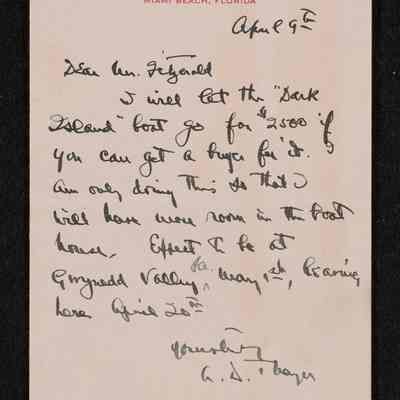 MIAMI BEACH, FLORIDA
April 9th
Dear Mr. Fitzgerald
I will let the "Dark
Island" boat go for $2500 if
you can get a buyer for it. I
am only doing this so that I
will have more room in the boat
house. Expect to be at
Gwynedd Valley, Pa. May 1st, leaving
here April 20th
Yours truly
A. D. Thayer